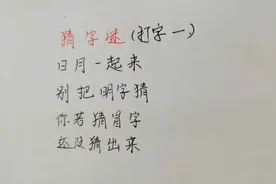 猜字谜(打字一)
日月一起来
别把明字猜
你若猜冒字
还没猜出来